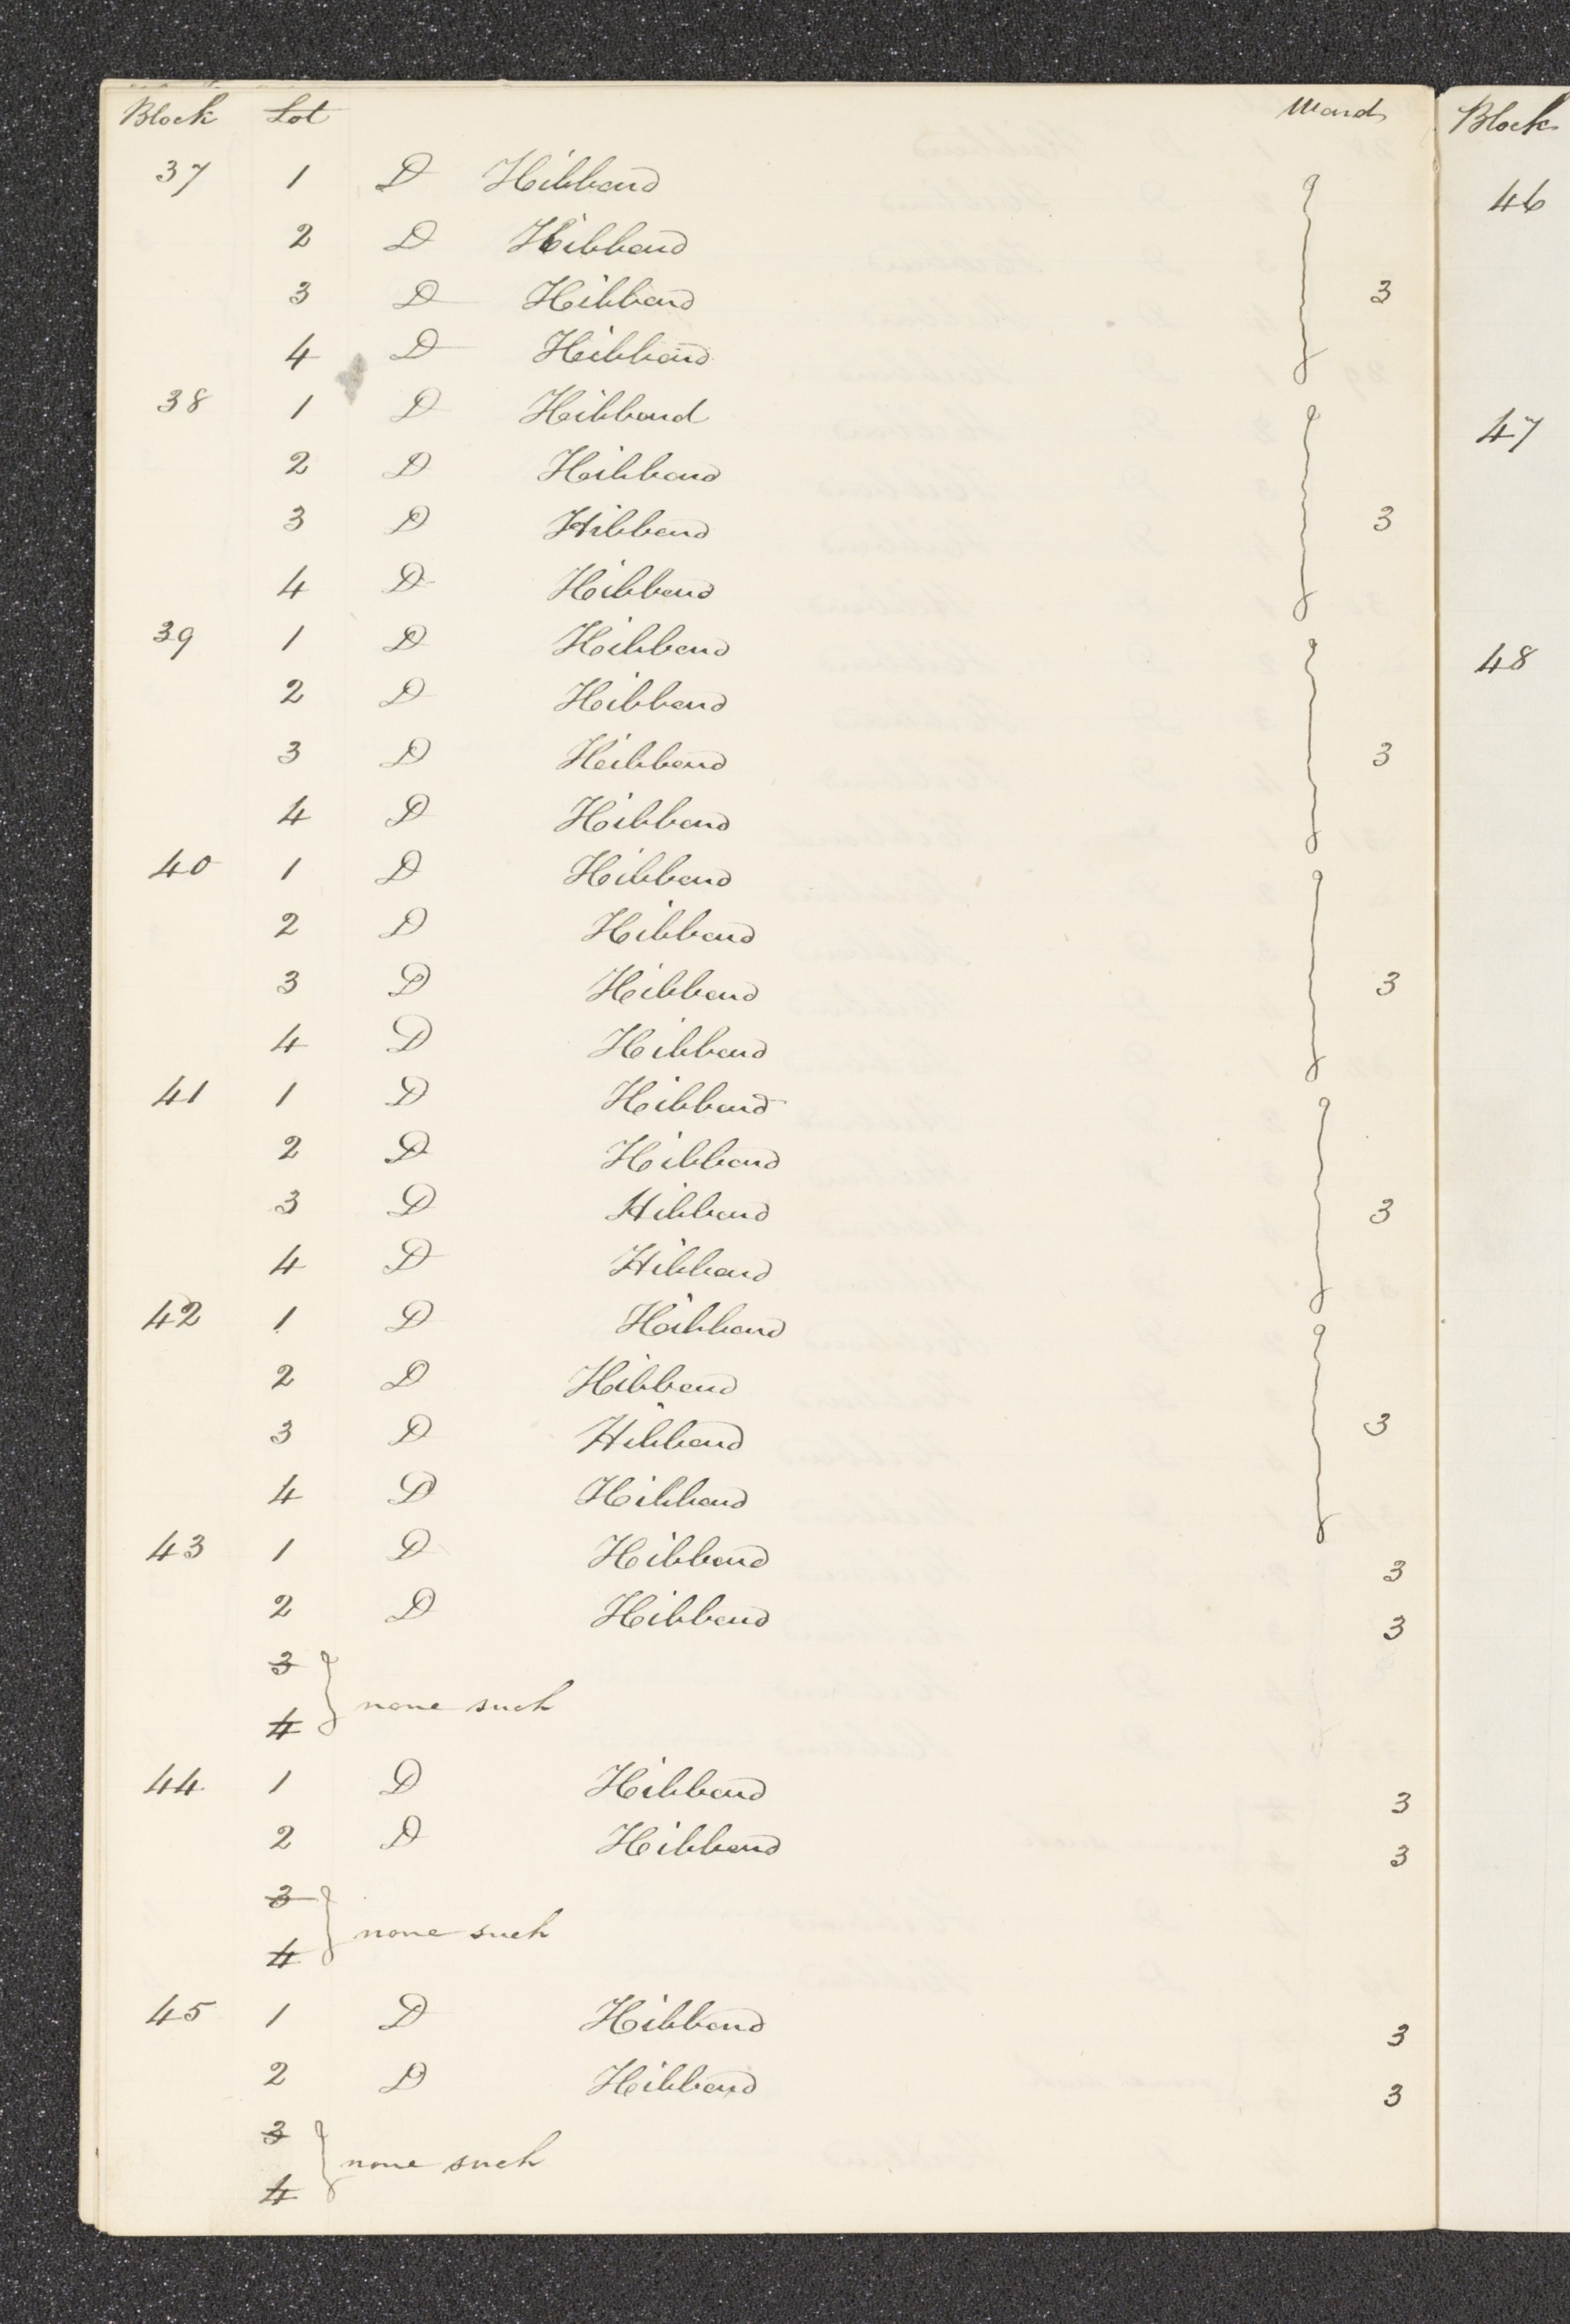 Block Lot Ward
37 1 D Hibbard
2 D Hibbard
3 D Hibbard 3
4 D Hibbard
38 1 D Hibbard
2 D Hibbard
3 D Hibbard 3
4 D Hibbard
39 1 D Hibbard
2 D Hibbard
3 D Hibbard 3
4 D Hibbard
40 1 D Hibbard
2 D Hibbard
3 D Hibbard 3
4 D Hibbard
41 1 D Hibbard
2 D Hibbard
3 D Hibbard 3
4 D Hibbard
42 1 D Hibbard
2 D Hibbard
3 D Hibbard 3
4 D Hibbard
43 1 D Hibbard 3
2 D Hibbard 3
3
none such
4
44 1 D Hibbard 3
2 D Hibbard 3
3
none such
4
45 1 D Hibbard 3
2 D Hibbard 3
3
none such
4
Block
46
47
48